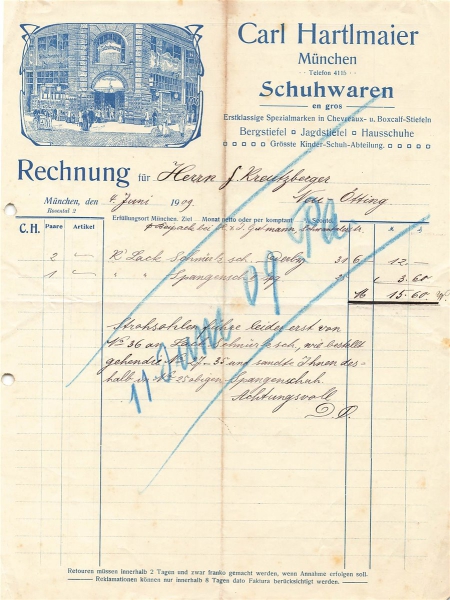 Carl Hartlmaier
München
Telefon 4115
Schuhwaren
en gros
Erstklassige Spezialmarken in Chevreaux- u. Boxcalf-Stiefeln
Bergstiefel Jagdstiefel Hausschuhe
Grösste Kinder-Schuh-Abteilung.
Rechnung für Herrn J. Kreutzberger
München, den 4. Juni 1909 Neu Ötting
Rosental 2
Erfüllungsort München. Ziel Monat netto oder per komptant % Sconto.
C. H. Paare Artikel
bei
2 K. Lack Schnürsch. Derby 6 12.—
1 " " Spangensch. 3.60
M 15.60
Strohsohlen führe leider erst von
No 36 an
No 27-35 und sandte Ihnen des-
halb in No 25 obigen Spangenschuh.
Achtungsvoll
D. O.
11 09 Pa.
Retouren müssen innerhalb 2 Tagen und zwar franko gemacht werden, wenn Annahme erfolgen soll.
Reklamationen können nur innerhalb 8 Tagen dato Faktura berücksichtigt werden.